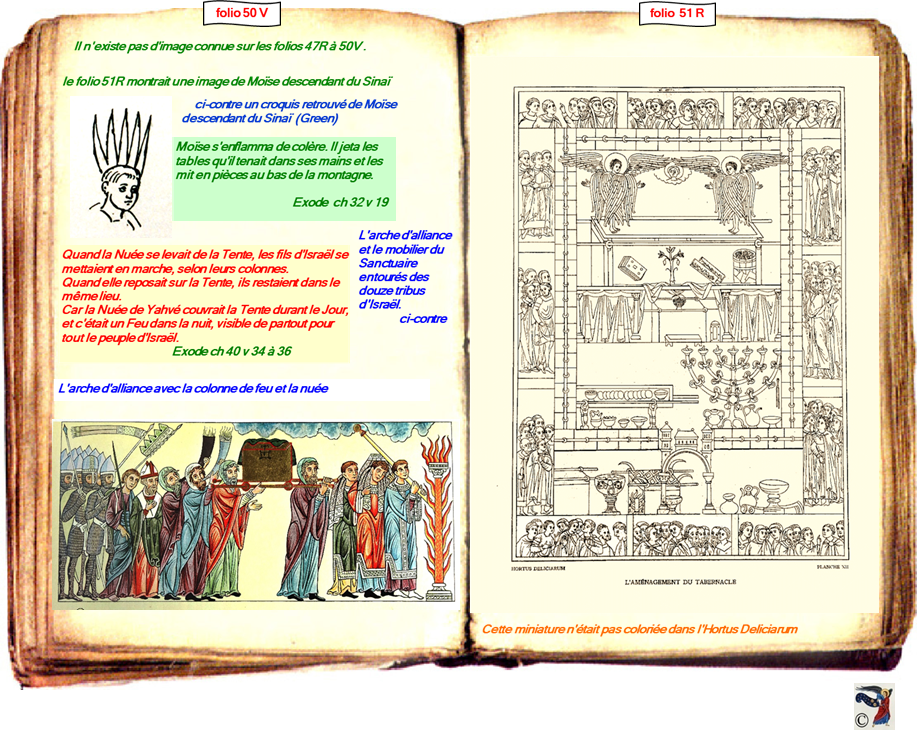 folio 50 V
Il n'existe pas d'image connue sur les folios 47R à 50V .
le folio 51R montrait une image de Moïse descendant du Sinaï
ci-contre un croquis retrouvé de Moïse
descendant du Sinaï (Green)
Moïse s'enflamma de colère. Il jeta les
tables qu'il tenait dans ses mains et les
mit en pièces au bas de la montagne.
Exode ch 32 v 19
L'arche d'alliance
et le mobilier du
Sanctuaire
entourés des
douze tribus
d'Israël.
ci-contre
Quand la Nuée se levait de la Tente, les fils d'Israël se
mettaient en marche, selon leurs colonnes.
Quand elle reposait sur la Tente, ils restaient dans le
même lieu.
Car la Nuée de Yahvé couvrait la Tente durant le Jour,
et c'était un Feu dans la nuit, visible de partout pour
tout le peuple d'Israël.
Exode ch 40 v 34 à 36
L'arche d'alliance avec la colonne de feu et la nuée
folio 51 R
HORTUS DELICIARUM
PLANCHE VII
L'AMÉNAGEMENT DU TABERNACLE
Cette miniature n'était pas coloriée dans l'Hortus Deliciarum
©